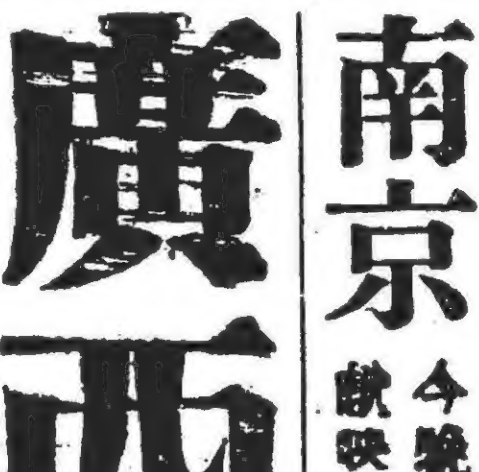 南京
今晚
獻映
廣西